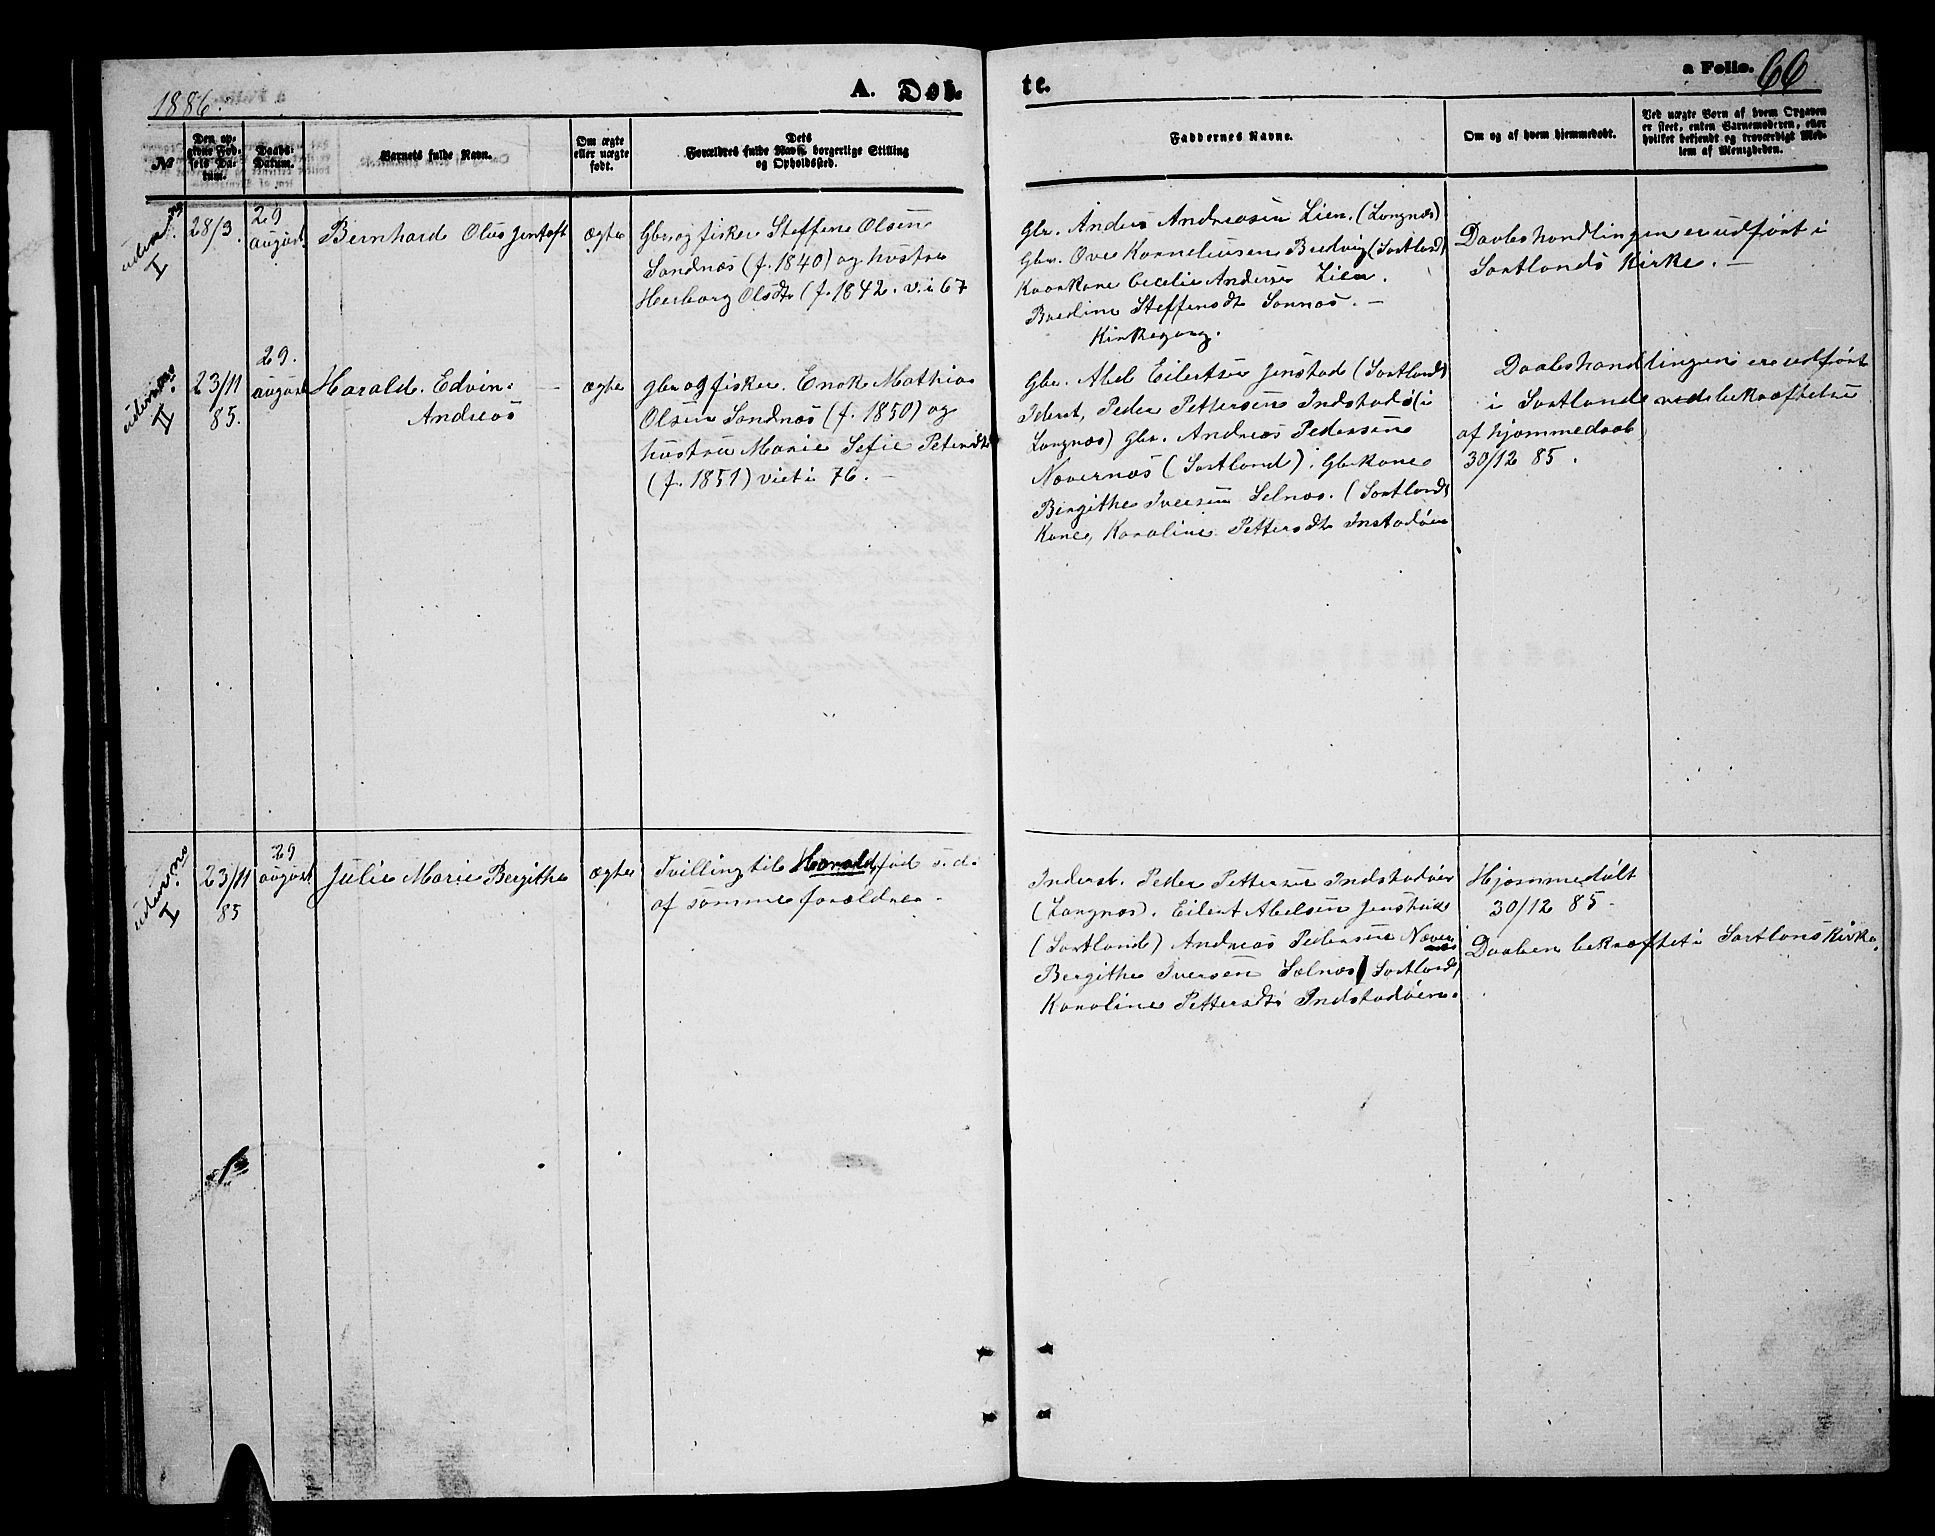 1886.
A. Døb
te.
a Folio. 66
No
Den op-
givne Fød-
sels Da-
tum.
Daabs-
Datum.
Barnets fulde Navn.
Om ægte
eller uægte
født.
Dets
Forældres fulde Navn, borgerlige Stilling
og Opholdssted.
Faddernes Navne.
Om og af hvem hjemmedøbt.
Ved uægte Børn af hvem Opgaven
er skeet, enten Barnemoderen, eller
hvilket bekjendt og troværdigt Med-
lem af Menigheden.
udensogns
I
28/3.
29
august
Bernhard Olus Jentoft
ægte
Gbr og fisker Steffen Olsen
Sandnæs (f. 1840) og hustru
Herborg Olsdtr (f. 1842. v. i 67
Gbr. Anders Andreasen Lien. (Langnæs)
Gbr. Ove Korneliusen Budvig (Sortland)
Kaarkone Cecelie Anderse Lien.
Bredine Steffensdt Sannæs. –
Kirkegang.
Daabshandlingen er udført i
Sortlands Kirke. –
II
23/11
85.
29.
august
Harald. Edvin
Andreas
ægte
gbr og fisker. Enok Mathias
Olsen Sandnæs (f. 1850) og
hustru Marie Sefie Petersdtr
(f. 1851) viet i 76. –
Gbr. Abel Eilertsen Jenstad (Sortland)
Iderst, Peder Pettersen Indstadi (i
Langnæs) Gbr. Andreas Pedersen
Nævernæs (Sortland). Gbkone
Bergithe Iversen Selnæs. (Sortland)
Kone, Karoline Pettersdt Instadøen
Daabshandlingen er udført
i Sortland vedsbekræftelse
af hjæmmedaab
30/12 85.
I
23/11
85
29
august
Julie Marie Bergithe
ægte
Tvilling til Harald, fød s. d.
af samme forældre. –
Inderst. Peder Pettersen Indstadøen
(Langnæs). Eilert Abelsen Jenstad
(Sortland) Andreas Pedersen Næver
næs
Bergithe Iversen Sælnæs (Sortland)
Karoline Pettersdt Indstadøen.
Hjæmmedøbt
30/12 85.
Daaben bekræftet i Sortlans Kirke.